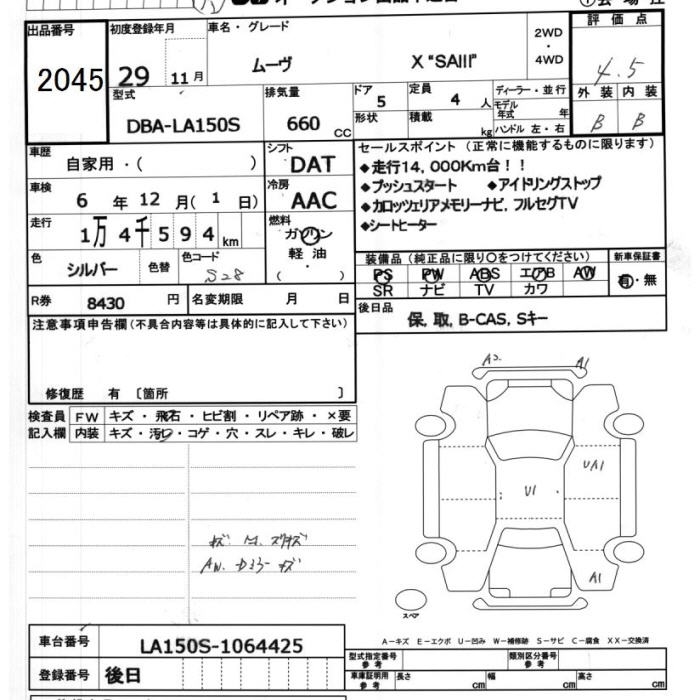 出品番号 2045
初度登録年月 29 11月
車名・グレード ムーヴ X "SAIII"
2WD ・ 4WD
評価点 4.5
外装 内装
B B
型式 DBA-LA150S
排気量 660 CC
ドア 5 形状
定員 4 人 積載 kg
ディーラー・並行
モデル年式 年
ハンドル 左・右
車歴 自家用・( )
シフト DAT
車検 6 年 12 月( 1 日)
冷房 AAC
走行 1万 4千 5 9 4 km
燃料 ガソリン 軽油 ( )
色 シルバー 色替 色コード S28
R券 8430 円 名変期限 月 日
セールスポイント (正常に機能するものに限ります)
◆走行14,000Km台!!
◆プッシュスタート ◆アイドリングストップ
◆カロッツェリアメモリーナビ,フルセグTV
◆シートヒーター
装備品 (純正品に限り○をつけてください) 新車保証書
PS PW ABS エアB AW 有・無
SR ナビ TV カワ
後日品
保,取,B-CAS,Sキー
注意事項申告欄(不具合内容等は具体的に記入して下さい)
修復歴 有 〔箇所 〕
検査員記入欄
FW キズ・飛石・ヒビ割・リペア跡・×要
内装 キズ・汚レ・コゲ・穴・スレ・キレ・破レ
A1
UA1
U1
A1
スペア
A-キズ E-エクボ U-凹み W-補修跡 S-サビ C-腐食 XX-交換済
車台番号 LA150S-1064425
登録番号 後日
型式指定番号 参考 類別区分番号 参考
車庫証明用 参考 長さ cm 幅 cm 高さ cm